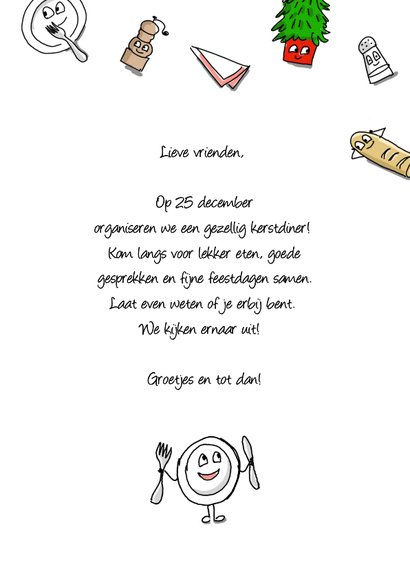 Lieve vrienden,
Op 25 december
organiseren we een gezellig kerstdiner!
Kom langs voor lekker eten, goede
gesprekken en fijne feestdagen samen.
Laat even weten of je erbij bent.
We kijken ernaar uit!
Groetjes en tot dan!